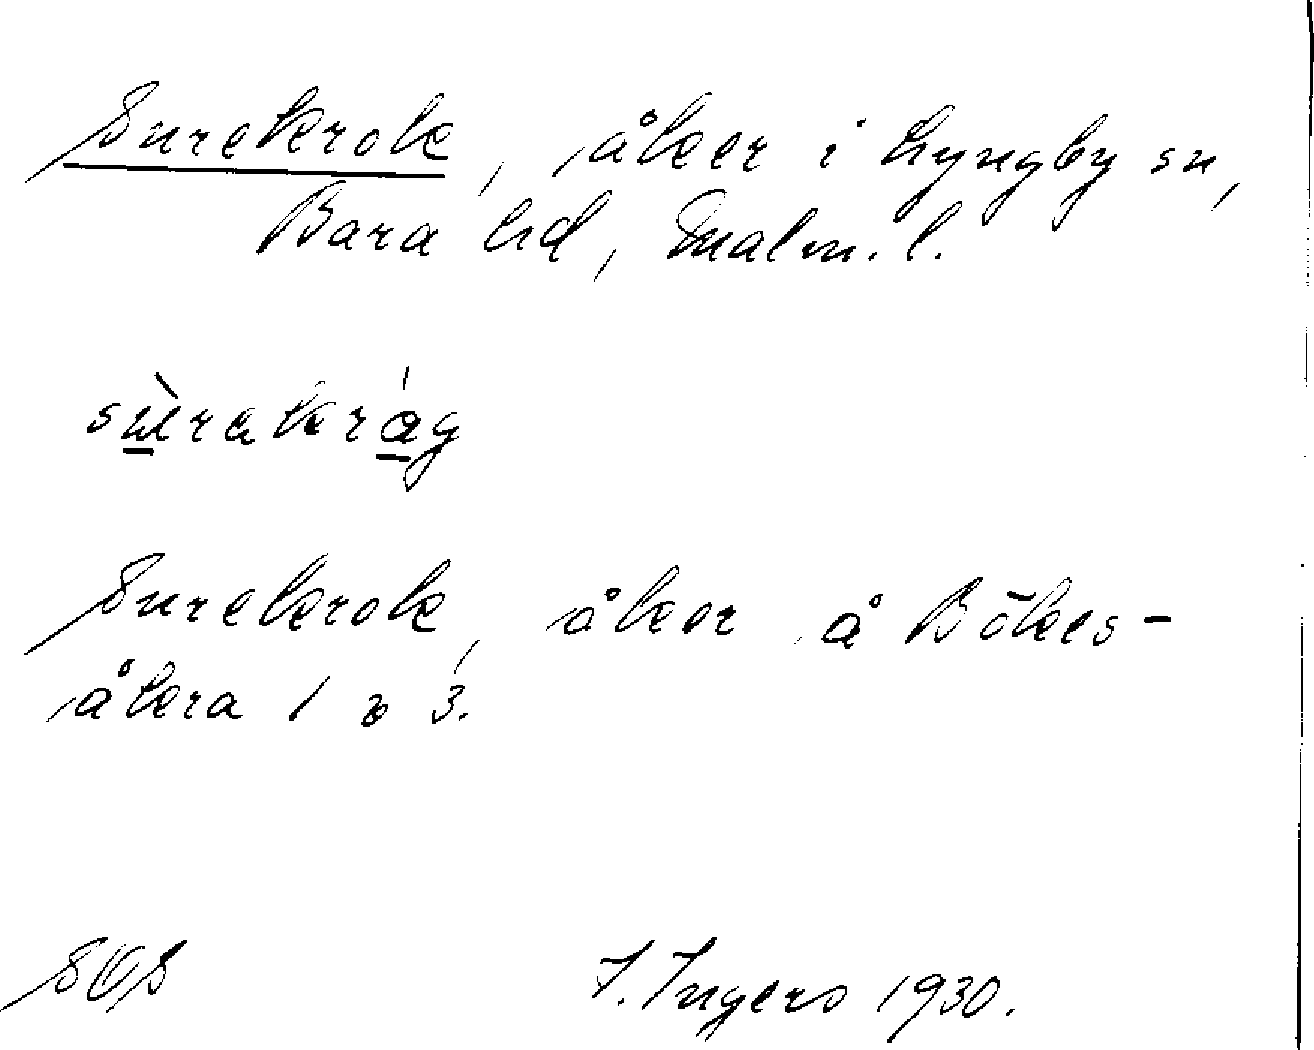 Surekrok, åker i Lyngby sn,
Bara hd, Malm. l.
sùrakrág
Surekrok, åker å Bökes-
åkra 1 o 3.
SOS I. Ingers 1930.